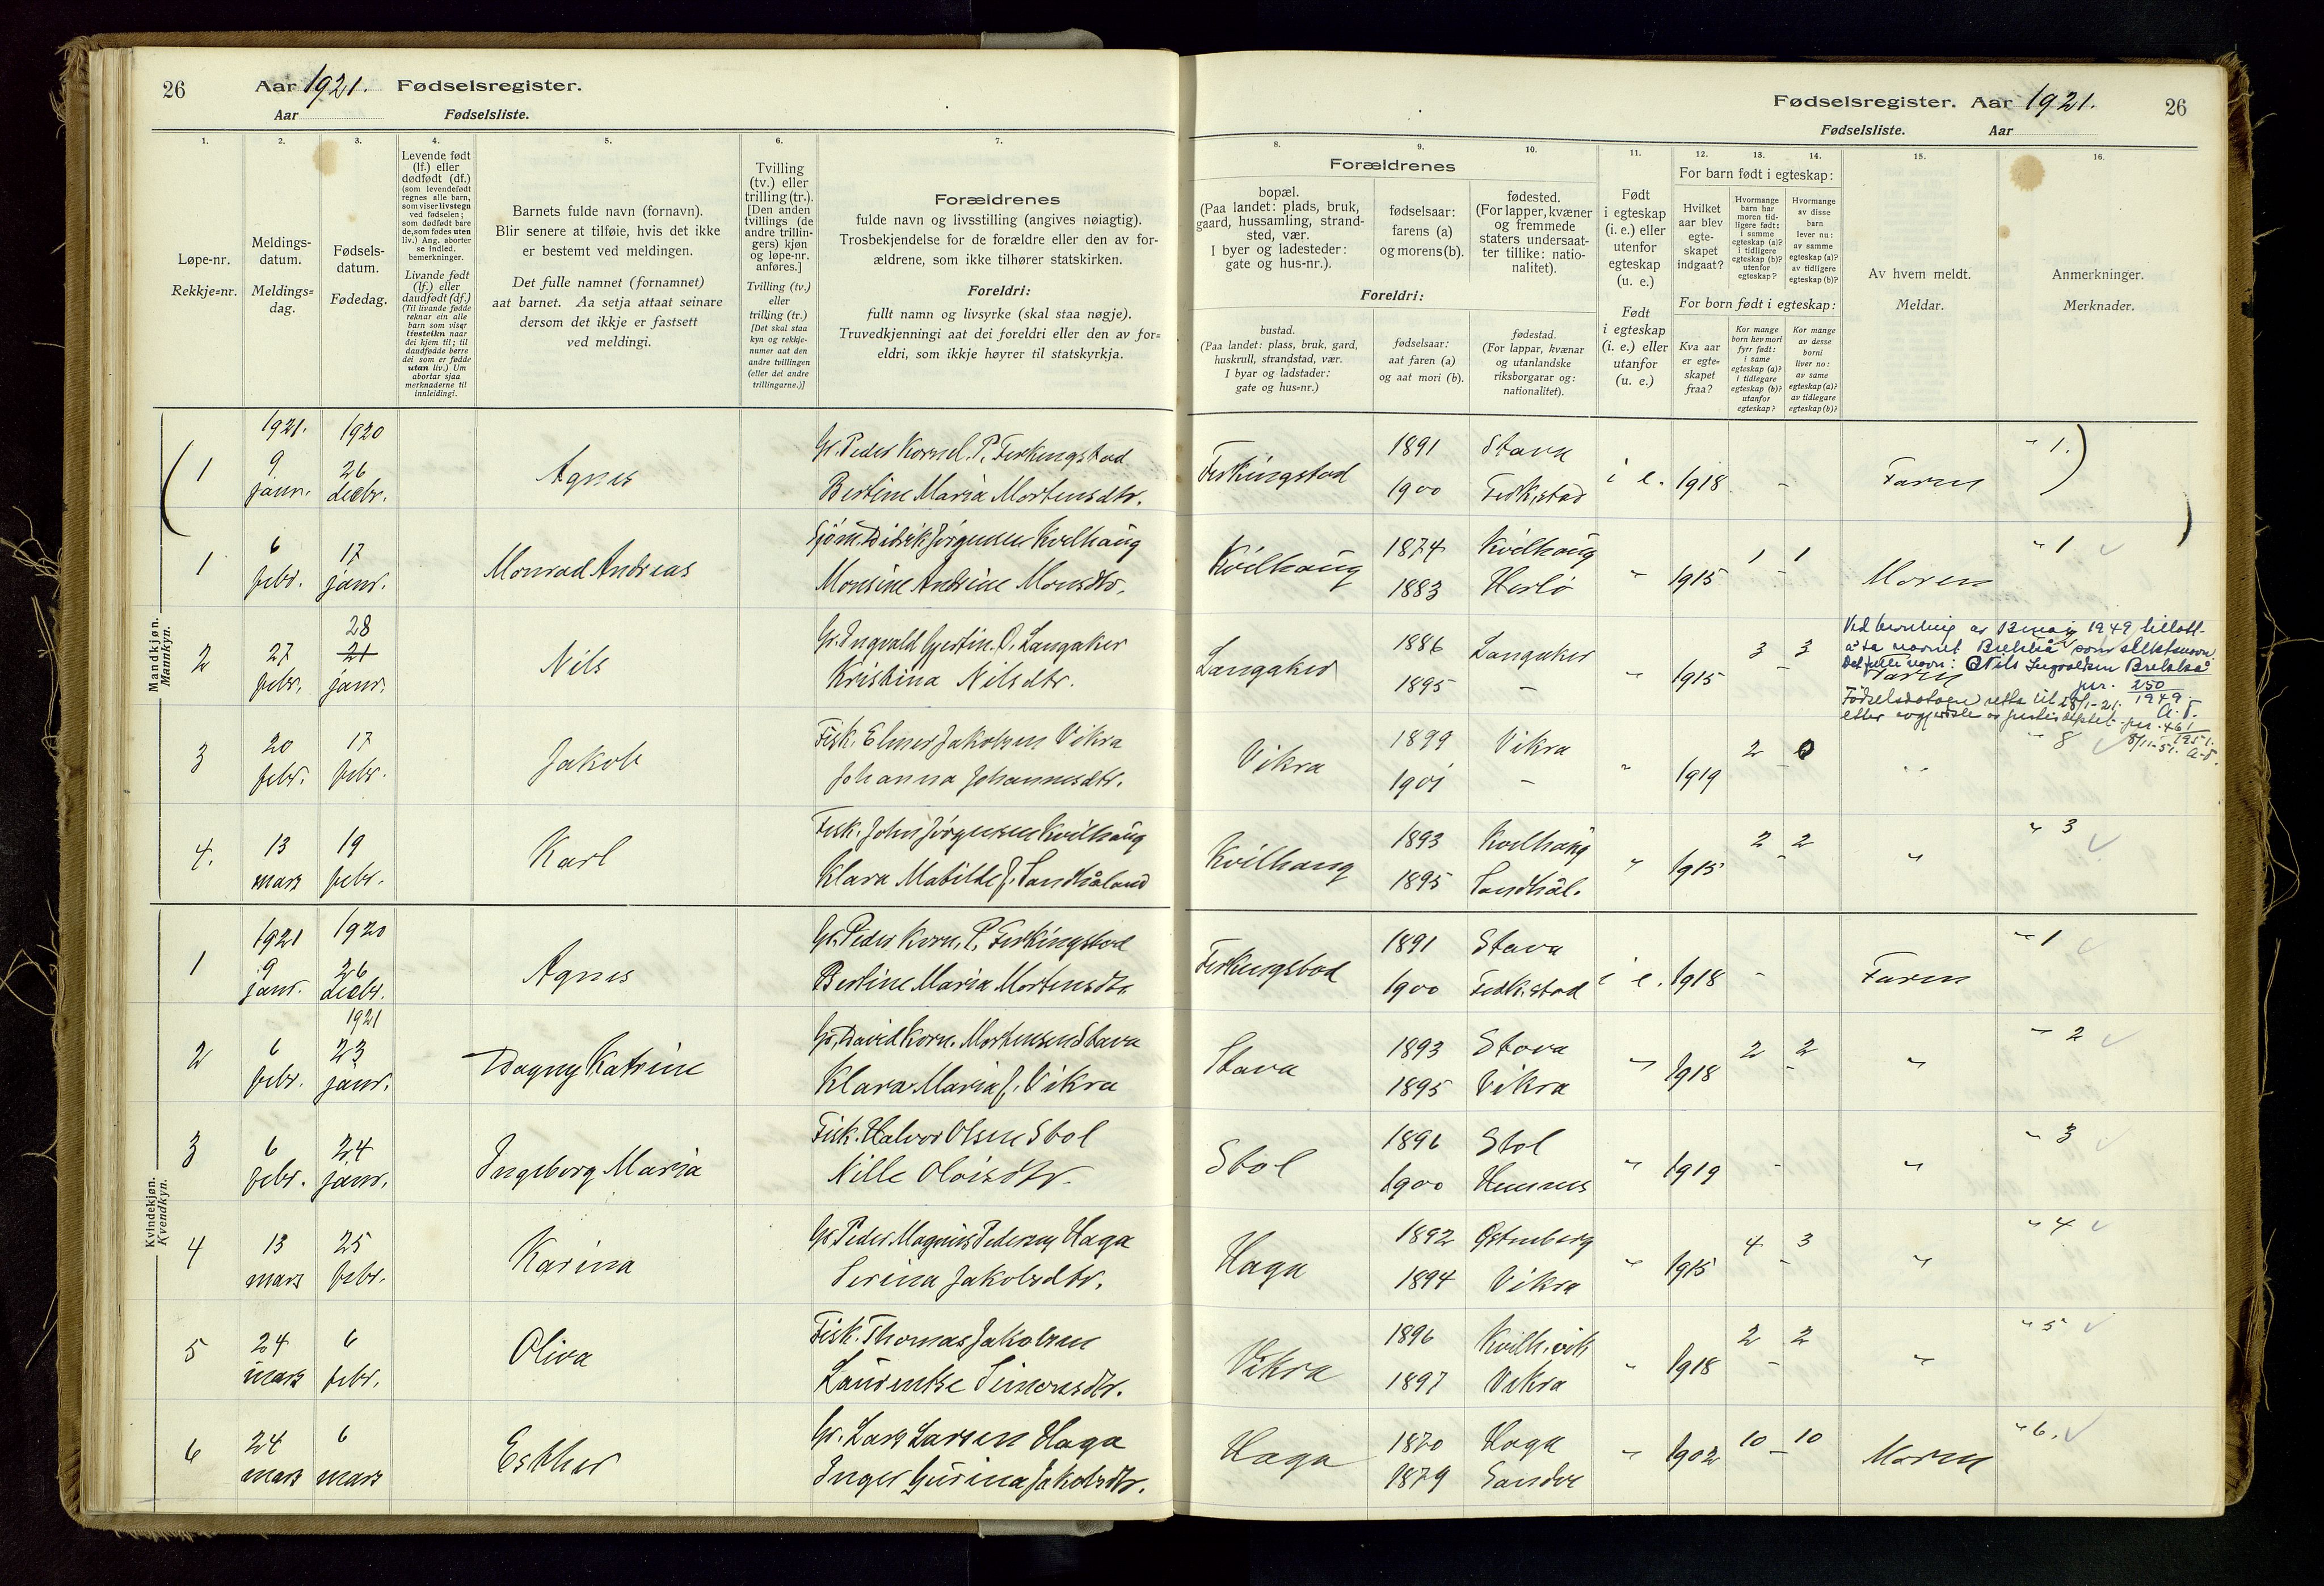 26
Aar 1921. Fødselsregister.
Aar Fødselsliste.
1.
2.
3.
4.
5.
6.
7.
Løpe-nr.
Rekkje=nr.
Meldings-
datum.
Meldings=
dag.
Fødsels-
datum.
Fødedag.
Levende født
(lf.) eller
dødfødt (df.)
(som levendefødt
regnes alle barn,
som viser livstegn
ved fødselen;
som dødfødt bare
de, som fødes uten
liv.) Ang. aborter
se indled.
bemerkninger.
Livande født
(lf.) eller
daudfødt (df.)
(Til livande fødde
reknar ein alle
barn som viser
livsteikn naar
dei kjem til; til
daudfødde berre
dei som er fødde
utan liv.) Um
abortar sjaa
merknaderne til
innleidingi.
Barnets fulde navn (fornavn).
Blir senere at tilføie, hvis det ikke
er bestemt ved meldingen.
Det fulle namnet (fornamnet)
aat barnet. Aa setja attaat seinare
dersom det ikkje er fastsett
ved meldingi.
Tvilling
(tv.) eller
trilling (tr.).
[Den anden
tvillings (de
andre trillin-
gers) kjøn
og løpe-nr.
anføres.]
Tvilling (tv.)
eller
trilling (tr.)
[Det skal staa
kyn og rekkje-
numer aat den
andre tvillingen
(eller dei andre
trillingarne.)]
Forældrenes
fulde navn og livsstilling (angives nøiagtig).
Trosbekjendelse for de forældre eller den av for-
ældrene, som ikke tilhører statskirken.
Foreldri:
fullt namn og livsyrke (skal staa nøgje).
Truvedkjenningi aat dei foreldri eller den av for=
eldri, som ikkje høyrer til statskyrkja.
Fødselsregister. Aar 1921. 26
Fødselsliste. Aar
8.
9.
10.
11.
12.
13.
14.
15.
16.
Forældrenes
bopæl.
(Paa landet: plads, bruk,
gaard, hussamling, strand-
sted, vær.
I byer og ladesteder:
gate og hus-nr.).
fødselsaar:
farens (a)
og morens (b).
fødested.
(For lapper, kvæner
og fremmede
staters undersaat-
ter tillike: natio-
nalitet).
Foreldri:
bustad.
(Paa landet: plass, bruk, gard,
huskrull, strandstad, vær.
I byar og ladstader:
gate og hus=nr.)
fødselsaar:
aat faren (a)
og aat mori (b).
fødestad.
(For lappar, kvænar
og utanlandske
riksborgarar og:
nationalitet).
Født
i egteskap
(i. e.) eller
utenfor
egteskap
(u. e.)
Født
i egteskap
(i. e.) eller
utanfor
egteskap
(u. e.)
For barn født i egteskap:
Hvilket
aar blev
egte-
skapet
indgaat?
Hvormange
barn har
moren tid-
ligere født:
i samme
egteskap (a)?
i tidligere
egteskap (b)?
utenfor
egteskap?
Hvormange
av disse
barn
lever nu:
av samme
egteskap (a)?
av tidligere
egteskap (b)?
For born født i egteskap:
Kva aar
er egte=
skapet
fraa?
Kor mange
born hev mori
fyrr født:
i same
egteskap (a)?
i tidlegare
egteskap (b)?
utanfor
egteskap?
Kor mange
av desse
borni
liver no:
av same
egteskap (a)?
av tidlegare
egteskap (b)?
Av hvem meldt.
Meldar.
Anmerkninger.
Merknader.
Mandkjøn.
Mannkyn.
1921. 1920
1 9 janr. 26 decbr. Agnes
Gr. Peder Kornel. P. Ferkingstad
Bertine Maria Mortensdtr.
Ferkingstad 1891 Stava i e. 1918 - Faren " 1.
1900 Ferk.stad
1 6 febr. 17 janr. Monrad Andreas
Sjöm. Didrik Jörgensen Kvilhaug
Monsine Andrine Monsdtr.
Kvilhaug 1874 Kvilhaug " 1915 1 - 1 Moren " 1
1883 Herlö
2 27 febr. 28 21 janr. Nils
Gr. Ingvald Gjertin. O. Langaker
Kristina Nilsdtr.
Langaker 1886 Langaker " 1915 3 - 3 Faren
1895 -
Ved bevilling av 12 mai 1949 tillatt
å ta navnet Brekkå som slektsnavn
Det fulle navn: Nils Ingvaldsen Brekkå
jnr. 250
1949.
A. T.
Fødselsdatoen retta til 28/1-21.
etter avgjerdsle av justisdeptet. jnr. 461
1951.
8/11-51. A-T.
3 20 febr. 17 febr. Jakob
Fisk. Elmer Jakobsen Vikra
Johanna Johannesdtr.
Vikra 1899 Vikra " 1919 2 - 0 " " 8
1901 -
4. 13 mars 19 febr. Karl
Fisk. John Jörgensen Kvilhaug
Klara Matilde J. Sandhåland
Kvilhaug 1893 Kvilhaug " 1915 2 - 2 " " 3
1895 Sandhål.
Kvindekjøn.
Kvendkyn.
1921 1920
1 9 janr. 26 decbr. Agnes
Gr. Peder Korn. P. Ferkingstad
Bertine Maria Mortensdtr.
Ferkingstad 1891 Stava i e. 1918 - Faren " 1
1900 Ferk.stad
1921
2 6 febr. 23 janr. Dagny Katrine
Gr. David Korn. Mortensen Stava
Klara Maria J. Vikra
Stava 1893 Stava " 1918 2 - 2 " " 2
1895 Vikra
3 6 febr. 24 janr. Ingeborg Maria
Fisk. Halvor Olsen Stol
Nille Olaisdtr.
Stol 1896 Stol " 1919 - " " 3
1900 Hemnes
4 13 mars 25 febr. Karina
Gr. Peder Magnus Pedersen Haga
Serina Jakobsdtr.
Haga 1892 Østenberg " 1915 4 - 3 " " 4
1894 Vikra
5 24 mars 6 febr. Oliva
Fisk. Thomas Jakobsen
Laurentse Simonsdtr.
Vikra 1896 Kvilh.vik " 1918 2 - 2 " " 5
1897 Vikra
6 24 mars 6 mars Esther
Gr. Lars Larsen Haga
Inger Gurina Jakobsdtr.
Haga 1870 Haga " 1902 10 - 10 Moren " 6.
1879 Sandve